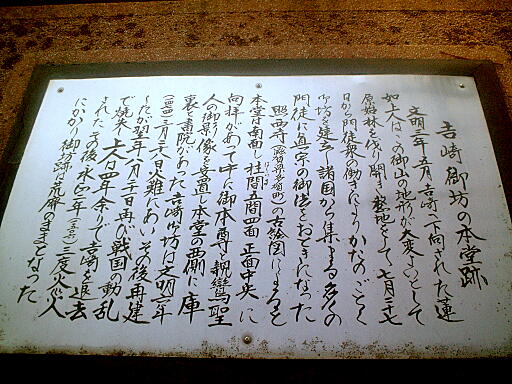 吉崎御坊の本堂跡
文明三年五月、吉崎へ下向された蓮
如上人は、この御山の地形が大変よいとして
原始林を伐り開き整地をして、七月二十七
日から門徒衆の働きによりかたのごとく
御坊を建立し諸国から集まる多くの
門徒に真宗の御法をおときになった
照西寺(滋賀県 町)の古絵図によると
本堂は南面し柱間五間四面正面中央に
向拝があって中に御本尊と親鸞聖
人の御影像を安置し本堂の西側に庫
裏と書院があった。吉崎御坊は文明六年
(一四七四)三月二十八日火難にあい、その後再建
したが翌年八月二十一日再び戦国の動乱
で焼亡、上人は四年余りで吉崎を退去
された。その後永正三年(一五〇六)三度兵火
にかかり御坊跡は荒廃のままとなった